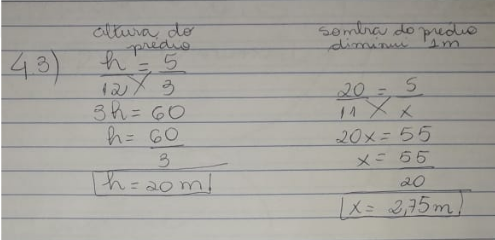 43)
altura do
prédio
h = 5
12 3
3h = 60
h = 60
3
h = 20 m
sombra do prédio
diminui 1m
20 = 5
11 x
20x = 55
x = 55
20
x = 2,75m